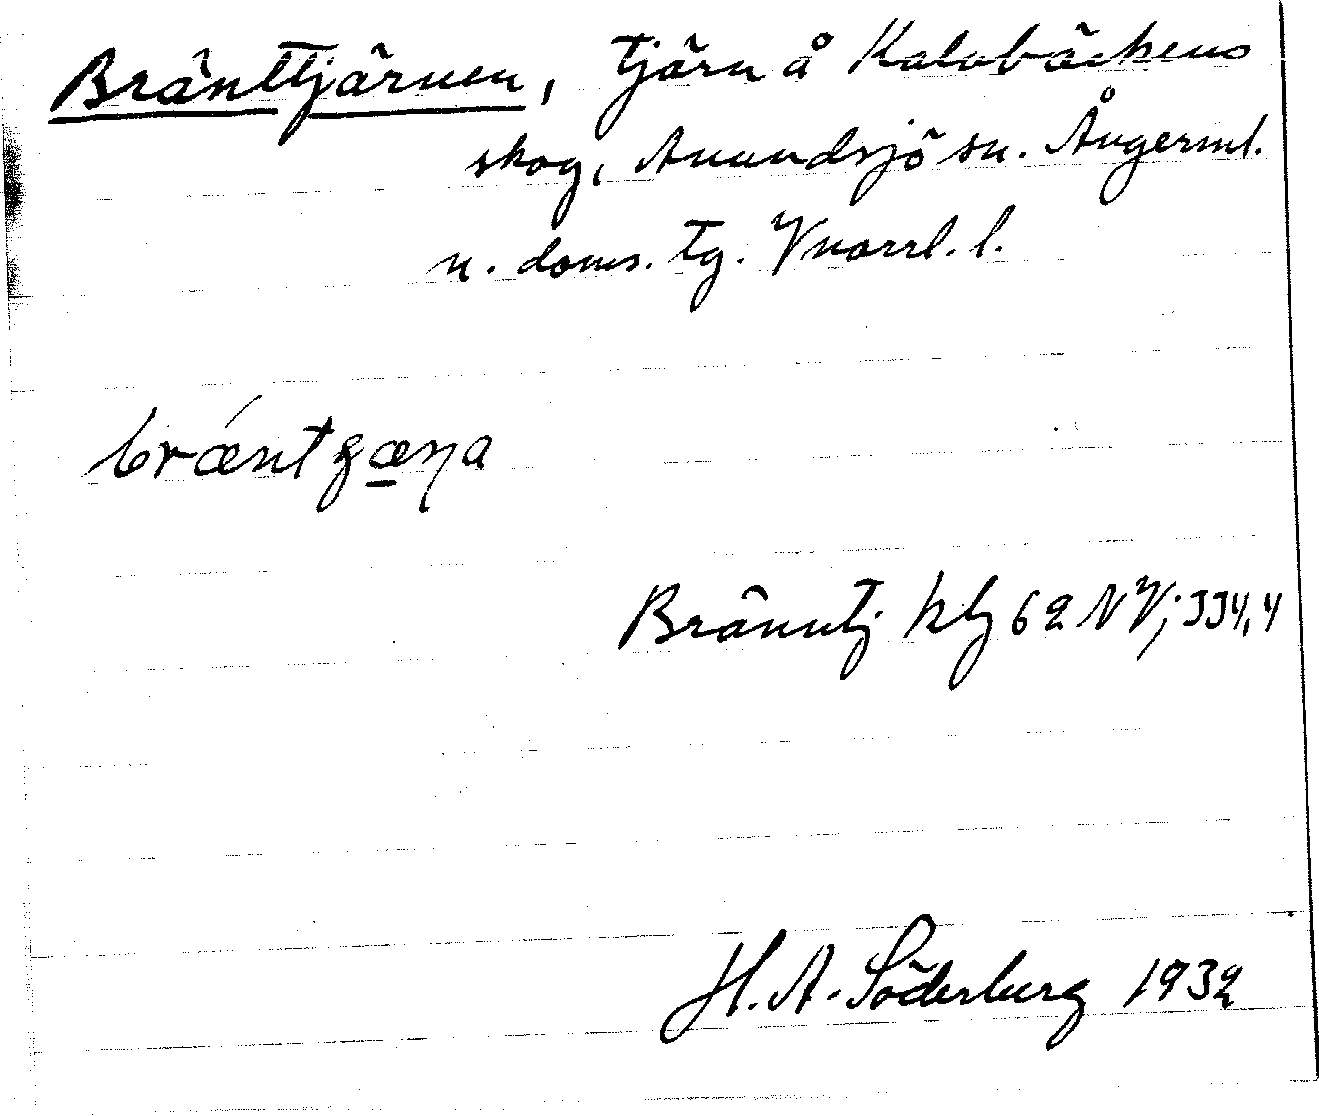 Bränttjärnen, tjärn å Kalvbäckens
skog, Anundsjö sn. Ångerml.
n. doms. tg. Vnorrl. l.
bræntʒæɳa
Bränntj ktj 62 NV; JJ4,4
H. A. Söderberg 1932